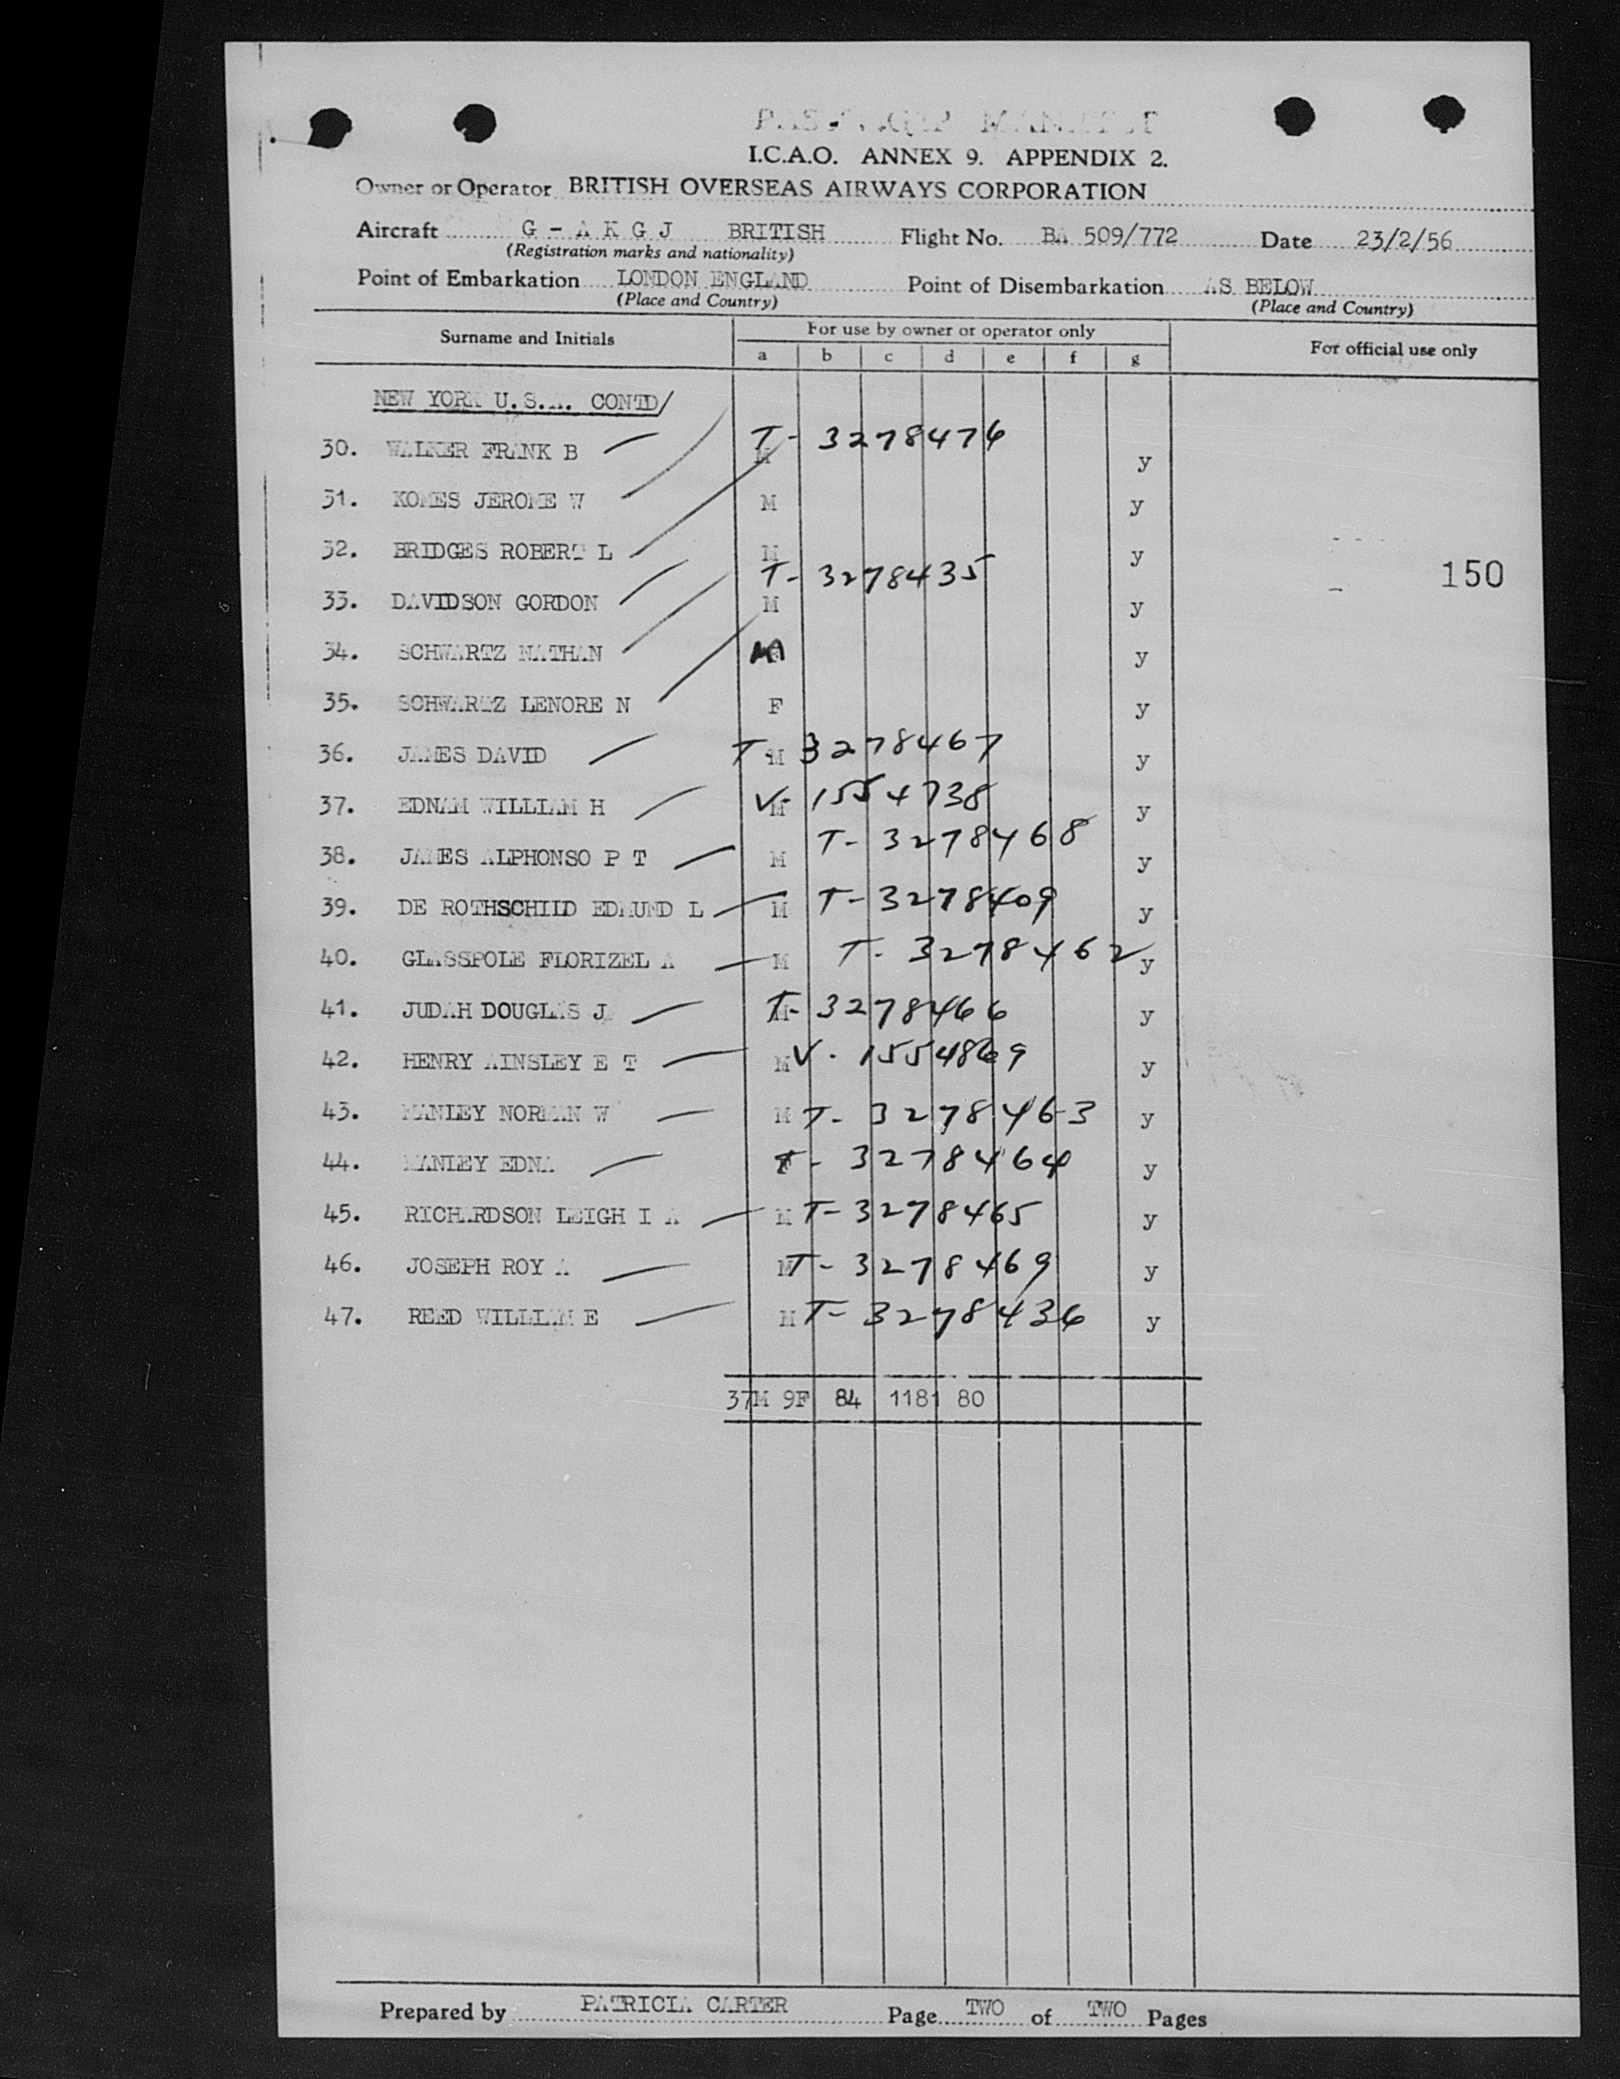 PASSENGER MANIFEST
I.C.A.O. ANNEX 9. APPENDIX 2.
Owner or Operator BRITISH OVERSEAS AIRWAYS CORPORATION
Aircraft G - A K G J BRITISH Flight No. BA 509/772 Date 23/2/56
(Registration marks and nationality)
Point of Embarkation LONDON ENGLAND Point of Disembarkation AS BELOW
(Place and Country) (Place and Country)
Surname and Initials For use by owner or operator only For official use only
a b c d e f g
NEW YORK U.S.A. CONTD/
30. WALKER FRANK B M T- 3278476 y
31. KOMES JEROME W M y
32. BRIDGES ROBERT L M y
150
33. DAVIDSON GORDON M T- 3278435 y
34. SCHWARTZ NATHAN M y
35. SCHWARTZ LENORE N F y
36. JAMES DAVID M T- 3278467 y
37. EDNAM WILLIAM H M V- 1554738 y
38. JAMES ALPHONSO P T M T- 3278468 y
39. DE ROTHSCHILD EDMUND L M T- 3278409 y
40. GLASSPOLE FLORIZEL A M T- 3278462 y
41. JUDAH DOUGLAS J M T- 3278466 y
42. HENRY AINSLEY E T M V- 1554869 y
43. MANLEY NORMAN W M T- 3278463 y
44. MANLEY EDNA T- 3278464 y
45. RICHARDSON LEIGH I A M T- 3278465 y
46. JOSEPH ROY A M T- 3278469 y
47. REED WILLIAM E M T- 3278436 y
37M 9F 84 1181 80
Prepared by PATRICIA CARTER Page TWO of TWO Pages